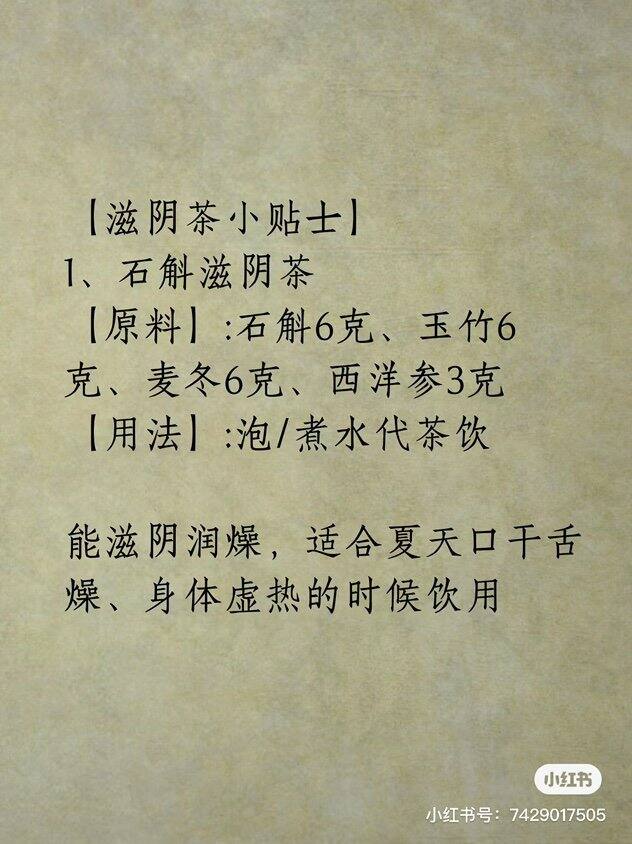 【滋阴茶小贴士】
1、石斛滋阴茶
【原料】:石斛6克、玉竹6
克、麦冬6克、西洋参3克
【用法】:泡/煮水代茶饮
能滋阴润燥，适合夏天口干舌
燥、身体虚热的时候饮用
小红书
小红书号：7429017505